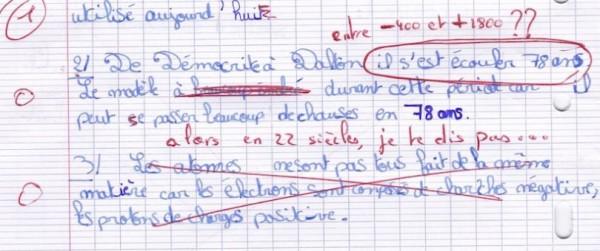 ① utilisé aujourd'huit
entre -400 et +1800 ??
2/ De Démocrite à Dalton, il s'est écouler 78 ans
0 Le modèle à durant cette périod car il
peut se passer beaucoup de chauses en 78 ans.
alors en 22 siècles, je te dis pas...
3/ Les atomes ne sont pas tous fait de la même
0 matière car les electrons sont composés de charges mégative,
les protons de charges positive.